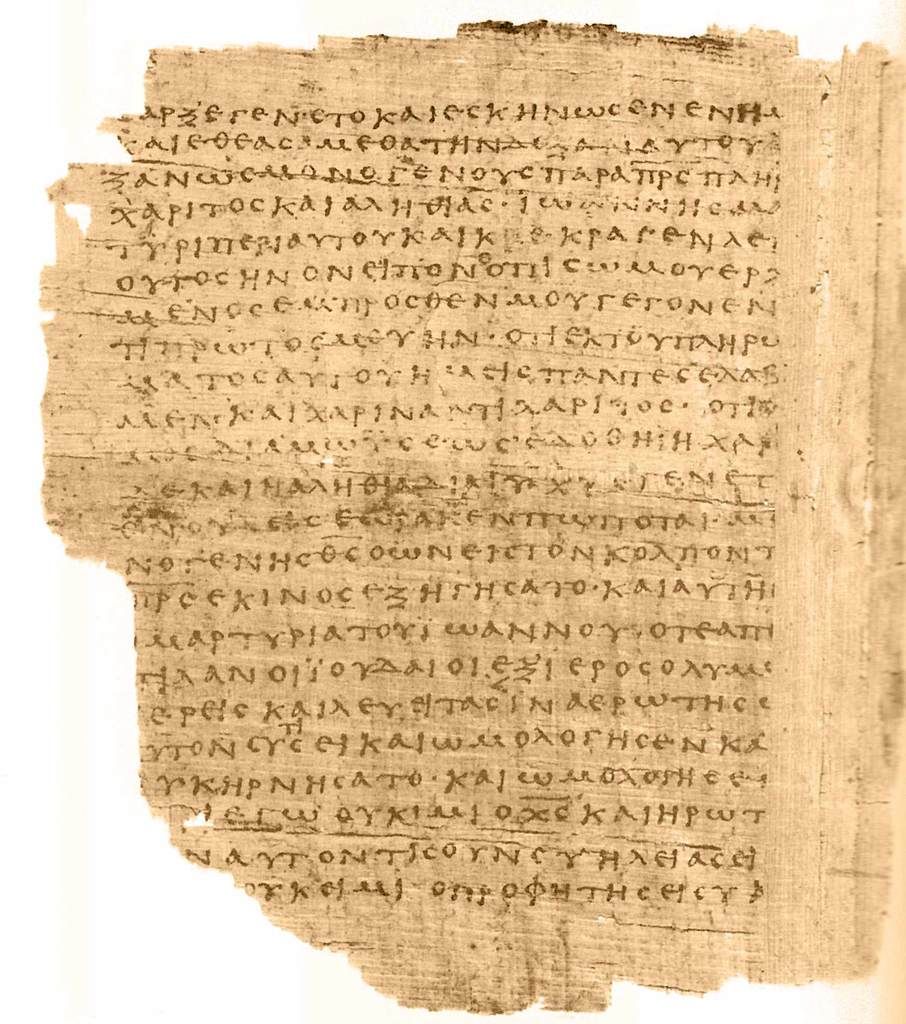 ϹΑΡΞΕΓΕΝΕΤΟΚΑΙΕϹΚΗΝΩϹΕΝΕΝΗΜ
ΚΑΙΕΘΕΑϹΑΜΕΘΑΤΗΝΔΟΞΑΝΑΥΤΟΥ
ΞΑΝΩϹΜΟΝΟΓΕΝΟΥϹΠΑΡΑΠΡϹΠΛΗ
ΧΑΡΙΤΟϹΚΑΙΑΛΗΘΙΑϹ·ΙΩΑΝΝΗϹΜΑ
ΤΥΡΙΠΕΡΙΑΥΤΟΥΚΑΙΚΕΚΡΑΓΕΝΛΕ
ΟΥΤΟϹΗΝΟΝΕΙΠΟΝΟΟΠΙϹΩΜΟΥΕΡΧ
ΜΕΝΟϹΕΜΠΡΟϹΘΕΝΜΟΥΓΕΓΟΝΕΝ
ΤΙΠΡΩΤΟϹΜΟΥΗΝ·ΟΤΙΕΚΤΟΥΠΛΗΡΩ
ΜΑΤΟϹΑΥΤΟΥΗΜΕΙϹΠΑΝΤΕϹΕΛΑΒ
ΜΕΝ·ΚΑΙΧΑΡΙΝΑΝΤΙΧΑΡΙΤΟϹ·ΟΤΙΟ
ΜΟϹΔΙΑΜΩΥϹΕΩϹΕΔΟΘΗ·ΗΧΑΡ
ΔΕΚΑΙΗΑΛΗΘΙΑΔΙΑΙΥΧΥΕΓΕΝΕΤ
ΘΝΟΥΔΕΙϹΕΩΡΑΚΕΝΠΩΠΟΤΑΙ·Μ
ΝΟΓΕΝΗϹΘϹΟΩΝΕΙϹΤΟΝΚΟΛΠΟΝΤ
ΠΡϹΕΚΙΝΟϹΕΞΗΓΗϹΑΤΟ·ΚΑΙΑΥΤΗ
ΜΑΡΤΥΡΙΑΤΟΥΪΩΑΝΝΟΥ·ΟΤΕΑΠΕ
ΤΙΛΑΝΟΙΪΟΥΔΑΙΟΙΕΞΪΕΡΟϹΟΛΥΜΩ
ΕΡΕΙϹΚΑΙΛΕΥΕΙΤΑϹΙΝΑΕΡΩΤΗϹΩ
ΥΤΟΝϹΥΤΙϹΕΙΚΑΙΩΜΟΛΟΓΗϹΕΝΚΑ
ΥΚΗΡΝΗϹΑΤΟ·ΚΑΙΩΜΟΛΟΓΗϹΕ
ΕΓΩΟΥΚΙΜΙΟΧϹΚΑΙΗΡΩΤ
ΝΑΥΤΟΝΤΙϹΟΥΝϹΥΗΛΕΙΑϹΕΙ
ΟΥΚΕΙΜΙΟΠΡΟΦΗΤΗϹΕΙϹΥ